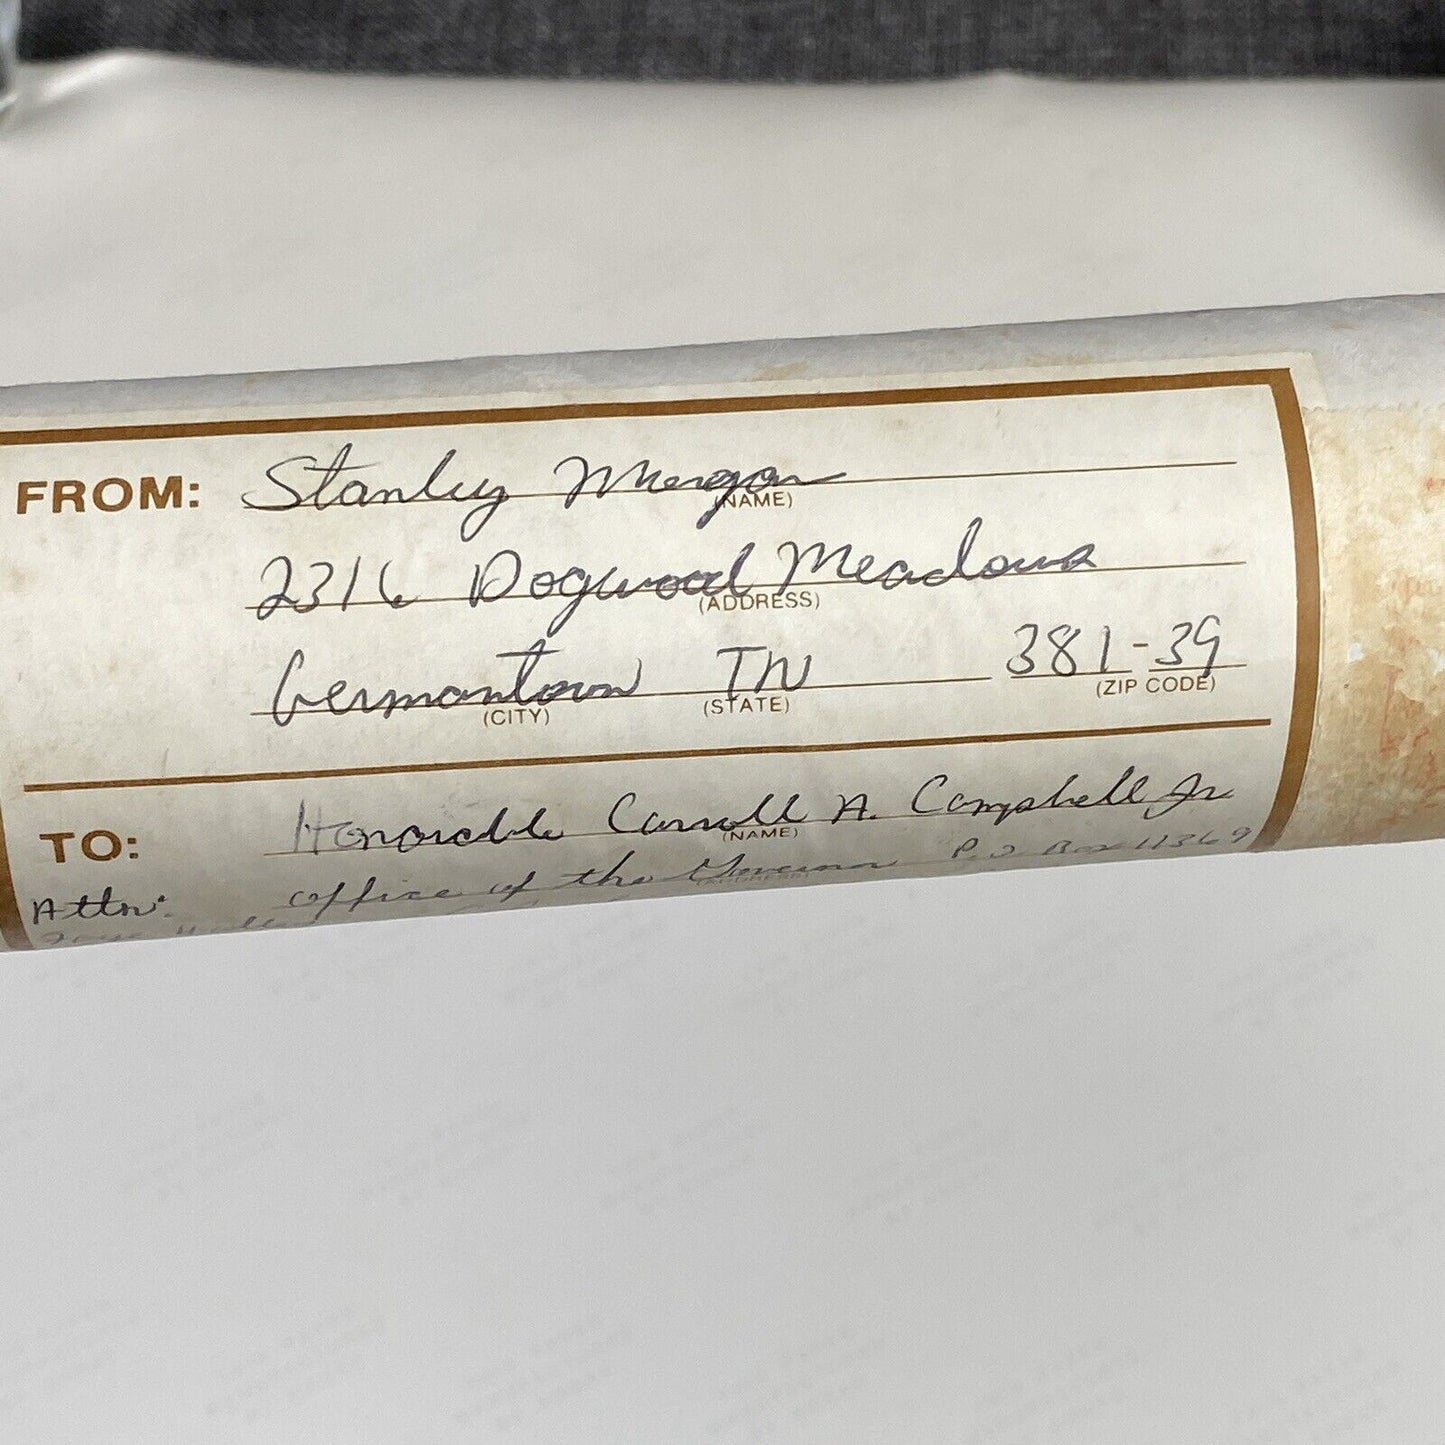 FROM: Stanley Morgan
(NAME)
2316 Dogwood Meadows
(ADDRESS)
Germantown TN 381-39
(CITY) (STATE) (ZIP CODE)
TO: Honorable Carroll A. Campbell Jr
(NAME)
Attn: Office of the Governor P.O Box 11369
(ADDRESS)